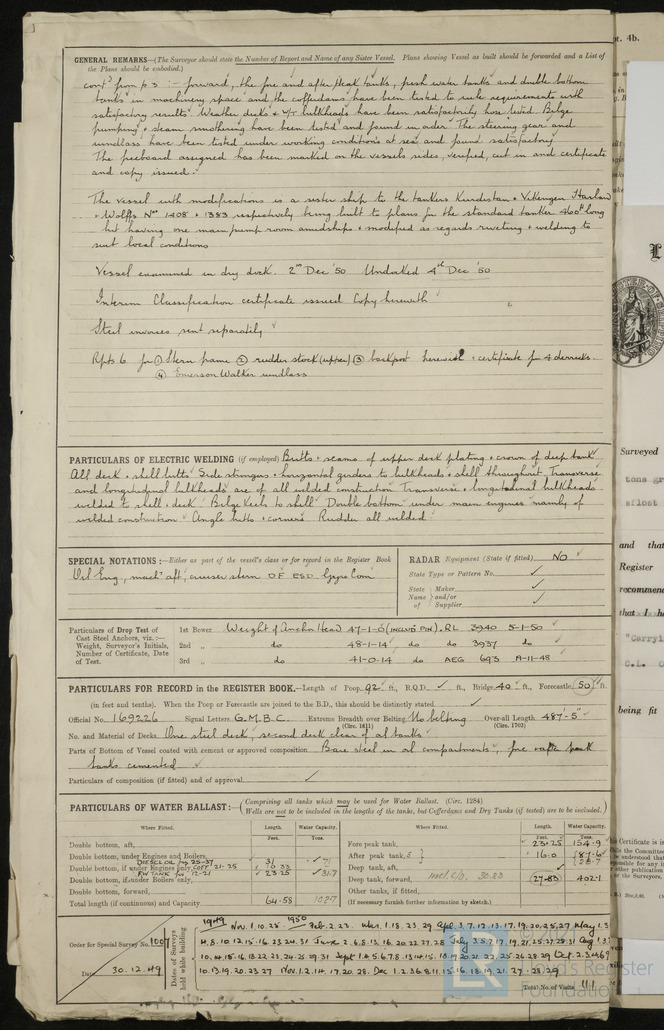 GENERAL REMARKS—(The Surveyor should state the Number of Report and Name of any Sister Vessel. Plans showing Vessel as built should be forwarded and a List of
the Plans should be embodied.)
contd from p 3 :— forward, the fore and after peak tanks, fresh water tanks and double bottom
tanks in machinery space and the cofferdams have been tested to rule requirements with
satisfactory results. Weather decks & W/T bulkheads have been satisfactorily hose tested. Bilge
pumping & steam smothering have been tested and found in order. The steering gear and
windlass have been tested under working conditions at sea and found satisfactory.
The freeboard assigned has been marked on the vessels sides, verified, cut in and certificate
and copy issued.
The vessel with modifications is a sister ship to the tankers Kurdistan & Vikingen Harland
& Wolffs Nos 1408 & 1383 respectively being built to plans for the standard tanker 460ft long
but having one main pump room amidships & modified as regards riveting & welding to
suit local conditions
Vessel examined in dry dock. 2nd Dec '50 Undocked 4th Dec '50
Interim Classification certificate issued Copy herewith
Steel invoices sent separately
Rpts 6 for (1) Stern frame (2) rudder stock (upper) (3) backpost herewith & certificate for 4 derricks.
(4) Emerson Walker windlass
PARTICULARS OF ELECTRIC WELDING (if employed) Butts & seams of upper deck plating & crown of deep tank
All deck & shell butts Side stringers & horizontal girders to bulkheads & shell throughout. Transverse
and longitudinal bulkheads are of all welded construction Transverse & longitudinal bulkheads
welded to shell & deck Bilge keels to shell Double bottom under main engines mainly of
welded construction Angle butts & corners Rudder all welded
SPECIAL NOTATIONS:—Either as part of the vessel's class or for record in the Register Book
Oil Eng, machy aft, cruiser stern DF ESD Gyro Com
RADAR Equipment (State if fitted) NO
State Type or Pattern No.
State Name of Maker and/or Supplier
Particulars of Drop Test of Cast Steel Anchors, viz.:— Weight, Surveyor's Initials, Number of Certificate, Date of Test.
1st Bower Weight of Anchor Head 47-1-0 (INCLUD PIN). RL 3940 5-1-50
2nd ,, do 48-1-14 do 3937 do
3rd ,, do 41-0-14 do AEG 693 11-11-48
PARTICULARS FOR RECORD in the REGISTER BOOK.—Length of Poop 92 ft., R.Q.D. ft., Bridge 40 ft., Forecastle 50 ft.
(in feet and tenths). When the Poop or Forecastle are joined to the B.D., this should be distinctly stated
Official No. 169226 Signal Letters G.M.B.C. Extreme Breadth over Belting No belting Over-all Length 487'-5"
(Circ. 1611) (Circ. 1703)
No. and Material of Decks One steel deck, second deck clear of oil tanks
Parts of Bottom of Vessel coated with cement or approved composition Bare steel in oil compartments, fore & after peak
tanks cemented
Particulars of composition (if fitted) and of approval
PARTICULARS OF WATER BALLAST:— (Comprising all tanks which may be used for Water Ballast. (Circ. 1284)
Wells are not to be included in the lengths of the tanks, but Cofferdams and Dry Tanks (if tested) are to be included.)
Where Fitted. Length. Water Capacity. Where Fitted. Length. Water Capacity.
Feet. Tons. Feet. Tons.
Double bottom, aft,
Double bottom, under Engines and Boilers,
DIESEL OIL
Double bottom, if under Engines only,
FW TANK 12-21 23.25
Double bottom, if under Boilers only,
Double bottom, forward,
Total length (if continuous) and Capacity 64.58
Fore peak tank, 23.25 154.9
After peak tank, 16.0
Deep tank, aft,
Deep tank, forward, incl. c/d. 30.83 (27.83) 402.1
Other tanks, if fitted,
(If necessary furnish further information by sketch.)
Order for Special Survey No. 1007
Date 30.12.49
Dates of Surveys held while building
1949 Nov. 1.10.25. 1950 Feb. 2.23. Mar. 1.18.23.29 Apl. 3.7.12.13.17.19.20.25.27 May 1.3
Total No. of Visits 111
pt. 4b.
L
Surveyed
tons gr
afloat
and that
Register
recommend
that I h
"Carryi
being fit
© 2021
LR
Lloyd's Register
Foundation